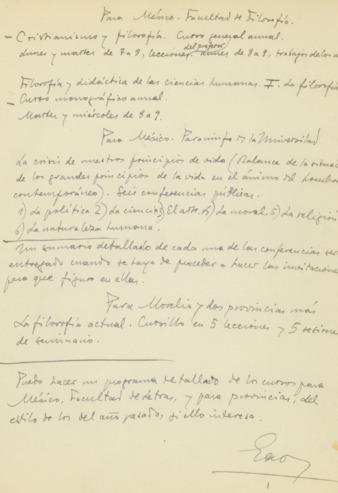 Para México. Facultad de Filosofía.
- Cristianismo y filosofía. Curso general anual.
del profesor
lunes y martes de 7 a 9, lecciones. lunes de 8 a 9, trabajos de los a
Filosofía y didáctica de las ciencias humanas. I. La filosofía
- Curso monográfico anual.
Martes y miércoles de 8 a 9.
Para México. Paraninfo de la Universidad
La crisis de nuestros principios de vida (Balance de la situac
de los grandes principios de la vida en el ánimo del hombre
contemporáneo). Seis conferencias públicas.
1) La política 2) La ciencia 3) El arte. 4) La moral. 5) La religión
6) La naturaleza humana.
Un sumario detallado de cada una de las conferencias será
entregado cuando se haya de proceder a hacer las invitaciones
para que figure en ellas.
Para Morelia y dos provincias más
La filosofía actual. Cursillo en 5 lecciones y 5 sesiones
de seminario.
Puedo hacer un programa detallado de los cursos para
México, Facultad de Letras, y para provincias, del
estilo de los del año pasado, si ello interesa.
Gaos